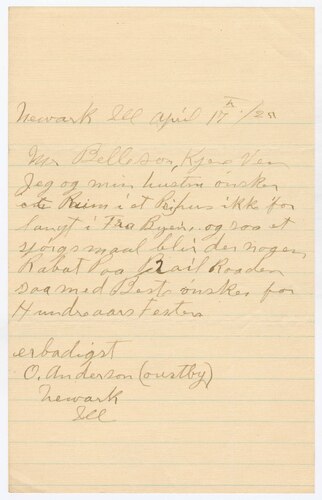 Newark Ill April 17th /25
Mr Belleson, Kjere Ven
Jeg og min hustru ønsker
et Ruim i et Privus ikke for
langt i fra Byen, og saa et
spørgsmaal bli der nogen
Rabat Paa Rail Roaden
saa med Beste ønsker for
Hundreaars Festen
erbødigst
O. Anderson (oustby)
Newark
Ill